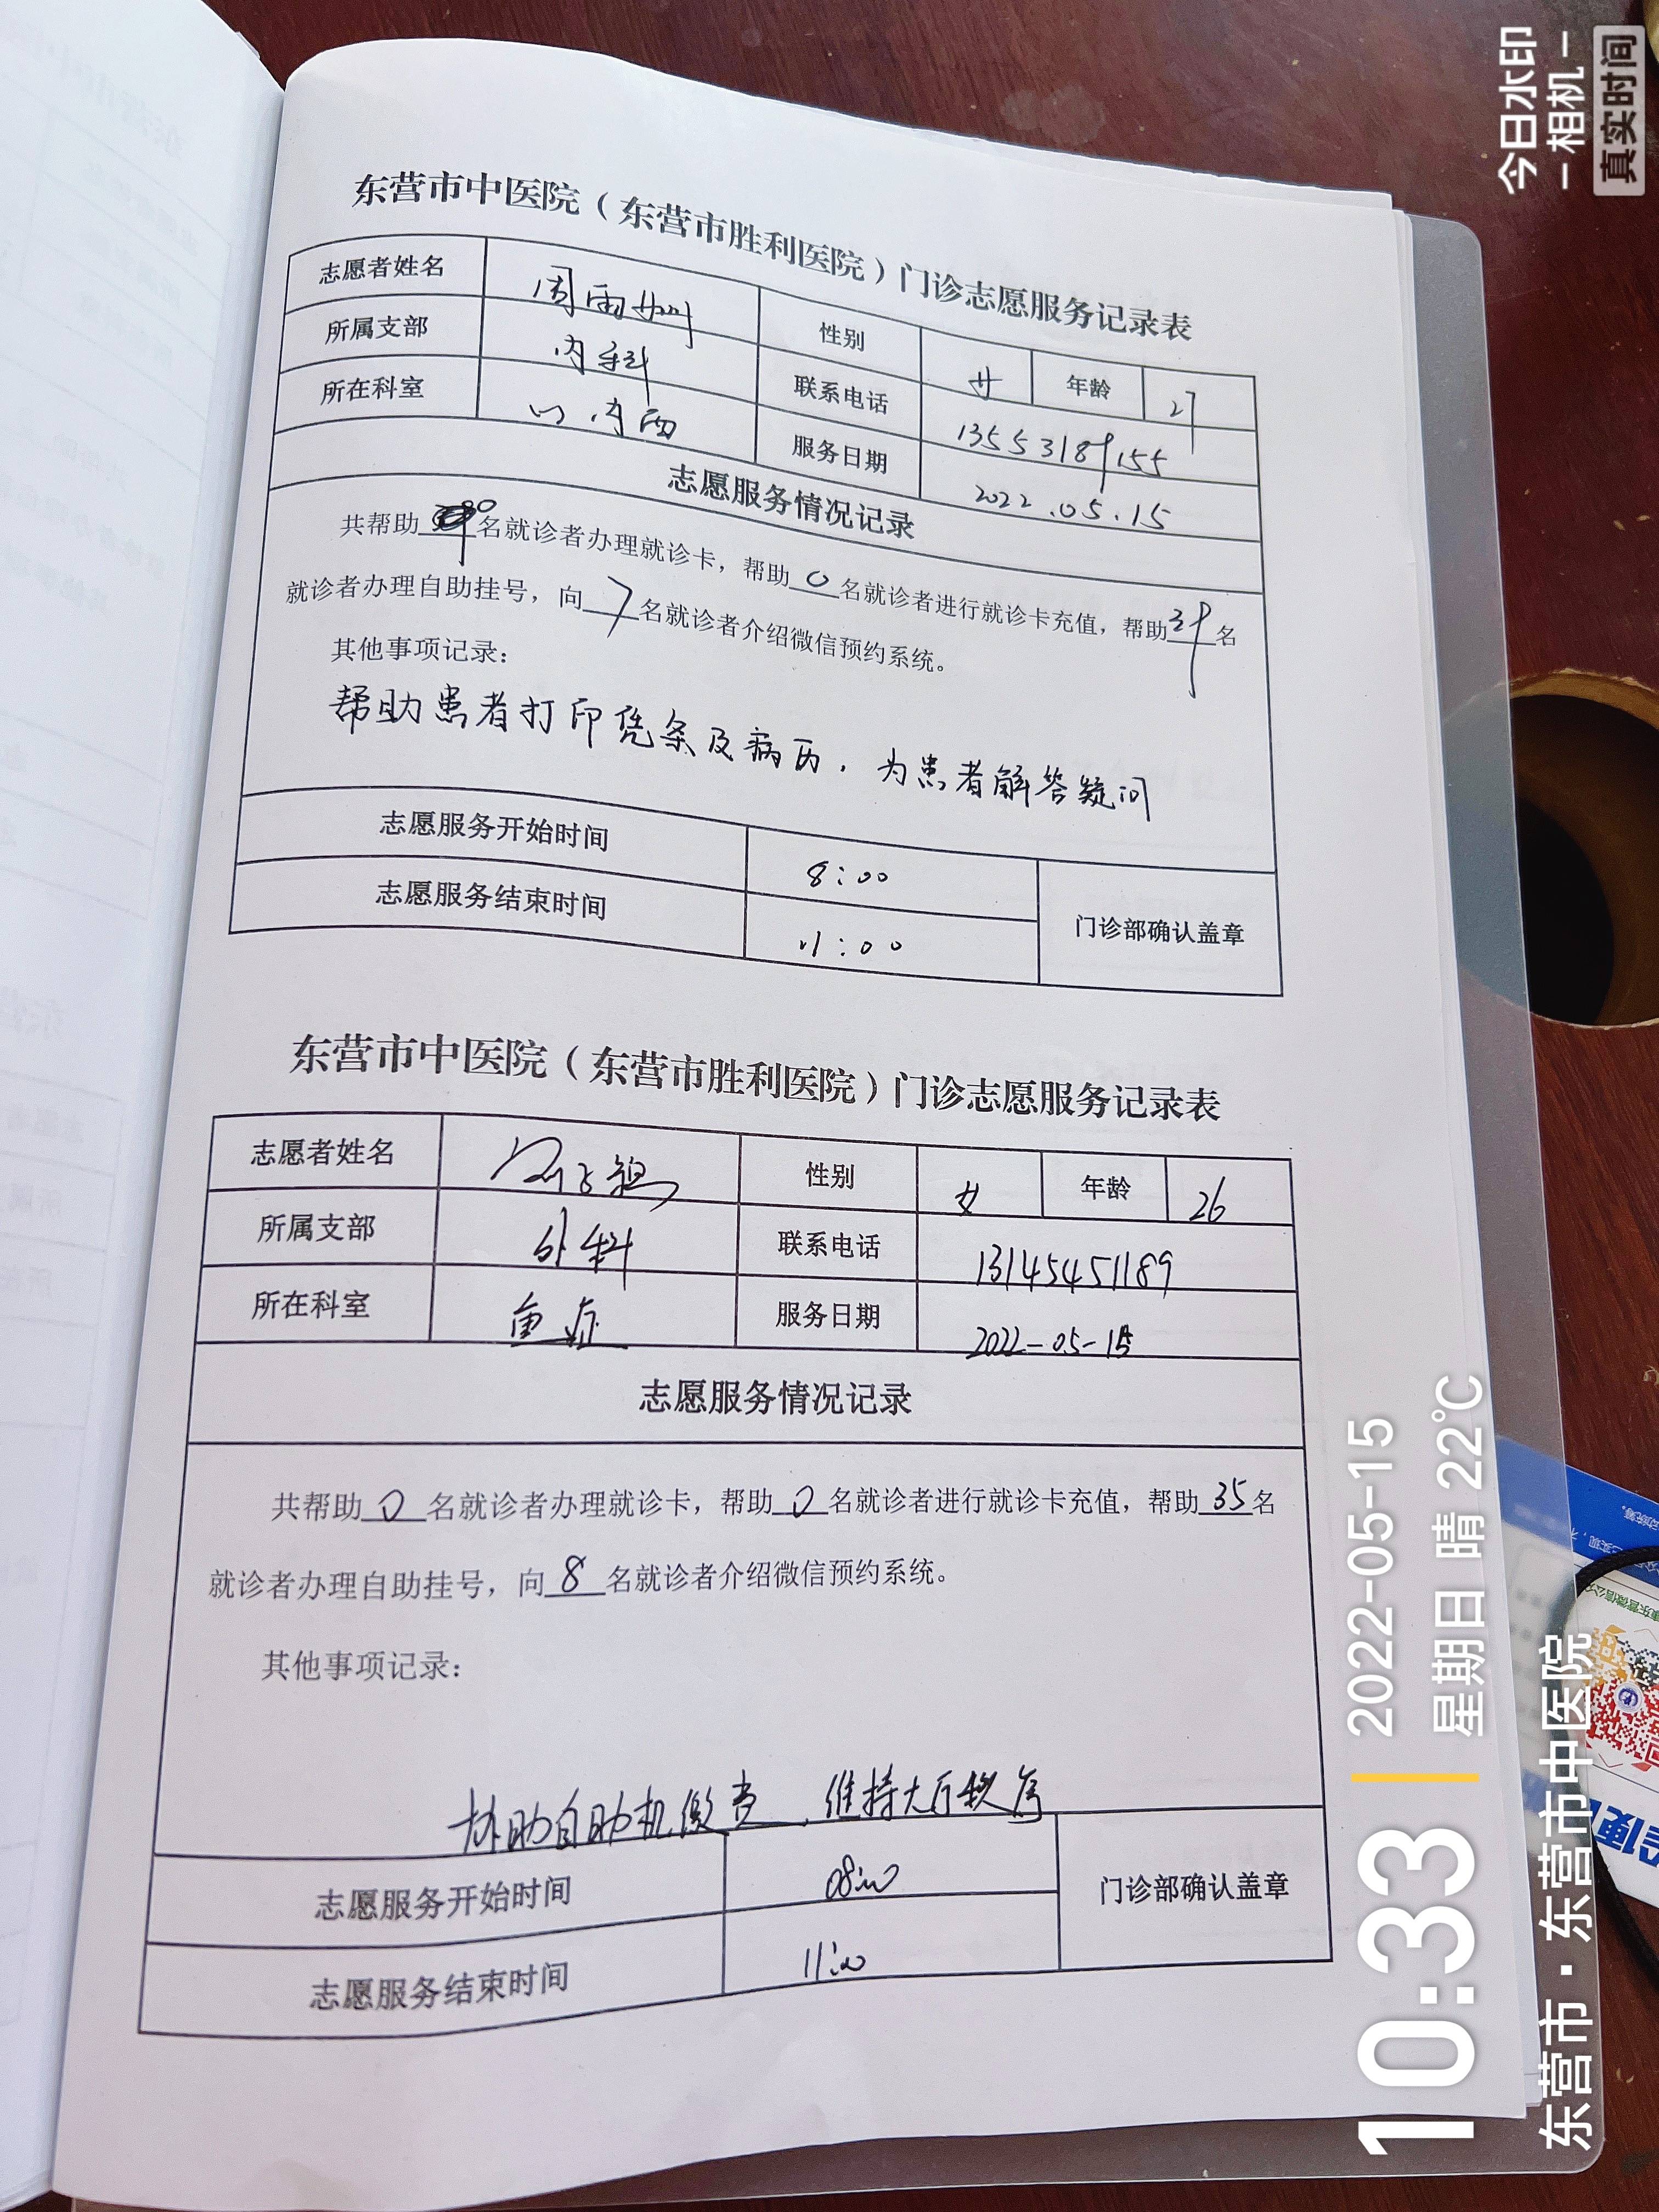 东营市中医院（东营市胜利医院）门诊志愿服务记录表
志愿者姓名 周雨 性别 女 年龄 27
所属支部 内科 联系电话 13553189155
所在科室 内 服务日期 2022.05.15
志愿服务情况记录
共帮助 0 名就诊者办理就诊卡，帮助 0 名就诊者进行就诊卡充值，帮助 39 名
就诊者办理自助挂号，向 7 名就诊者介绍微信预约系统。
其他事项记录：
帮助患者打印凭条及病历，为患者解答疑问
志愿服务开始时间 8:00
志愿服务结束时间 11:00
门诊部确认盖章
东营市中医院（东营市胜利医院）门诊志愿服务记录表
志愿者姓名 性别 女 年龄 26
所属支部 外科 联系电话 13145451189
所在科室 重症 服务日期 2022-05-15
志愿服务情况记录
共帮助 0 名就诊者办理就诊卡，帮助 0 名就诊者进行就诊卡充值，帮助 35 名
就诊者办理自助挂号，向 8 名就诊者介绍微信预约系统。
其他事项记录：
协助自助机缴费，维持大厅秩序
志愿服务开始时间 08:00
志愿服务结束时间 11:00
门诊部确认盖章
今日水印
-相机-
真实时间
10:33
2022-05-15
星期日 晴 22℃
东营市·东营市中医院